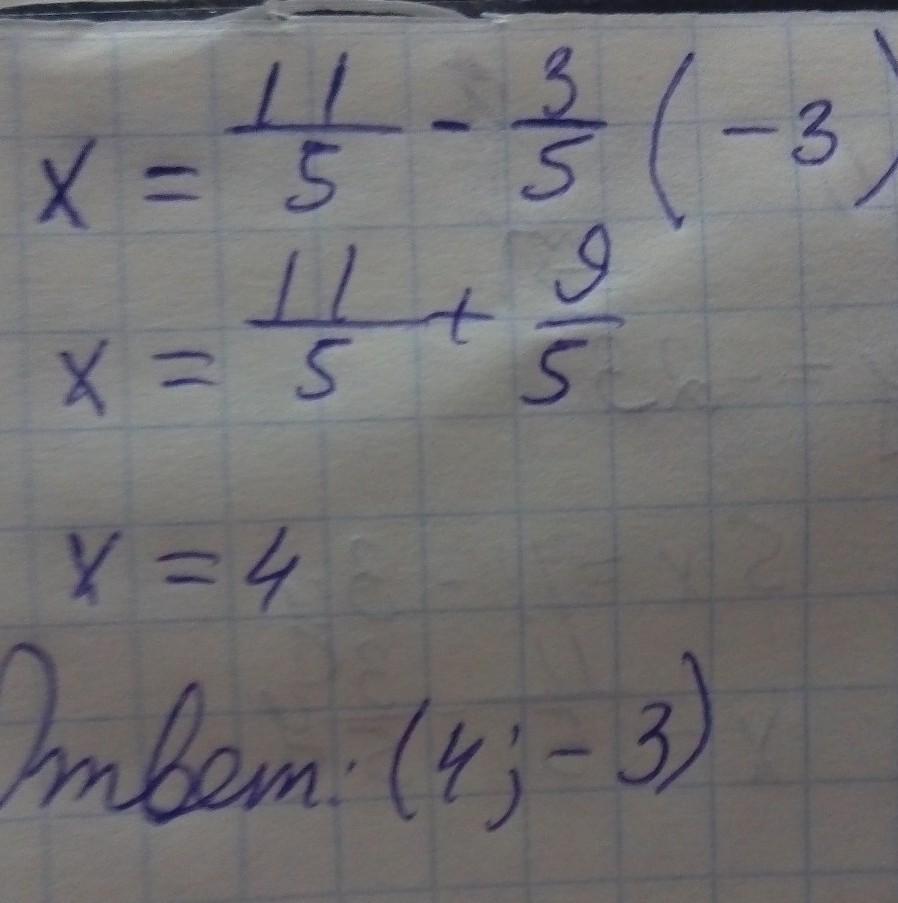 x = 11/5 - 3/5 (-3)
x = 11/5 + 9/5
x = 4
Ответ: (4; -3)